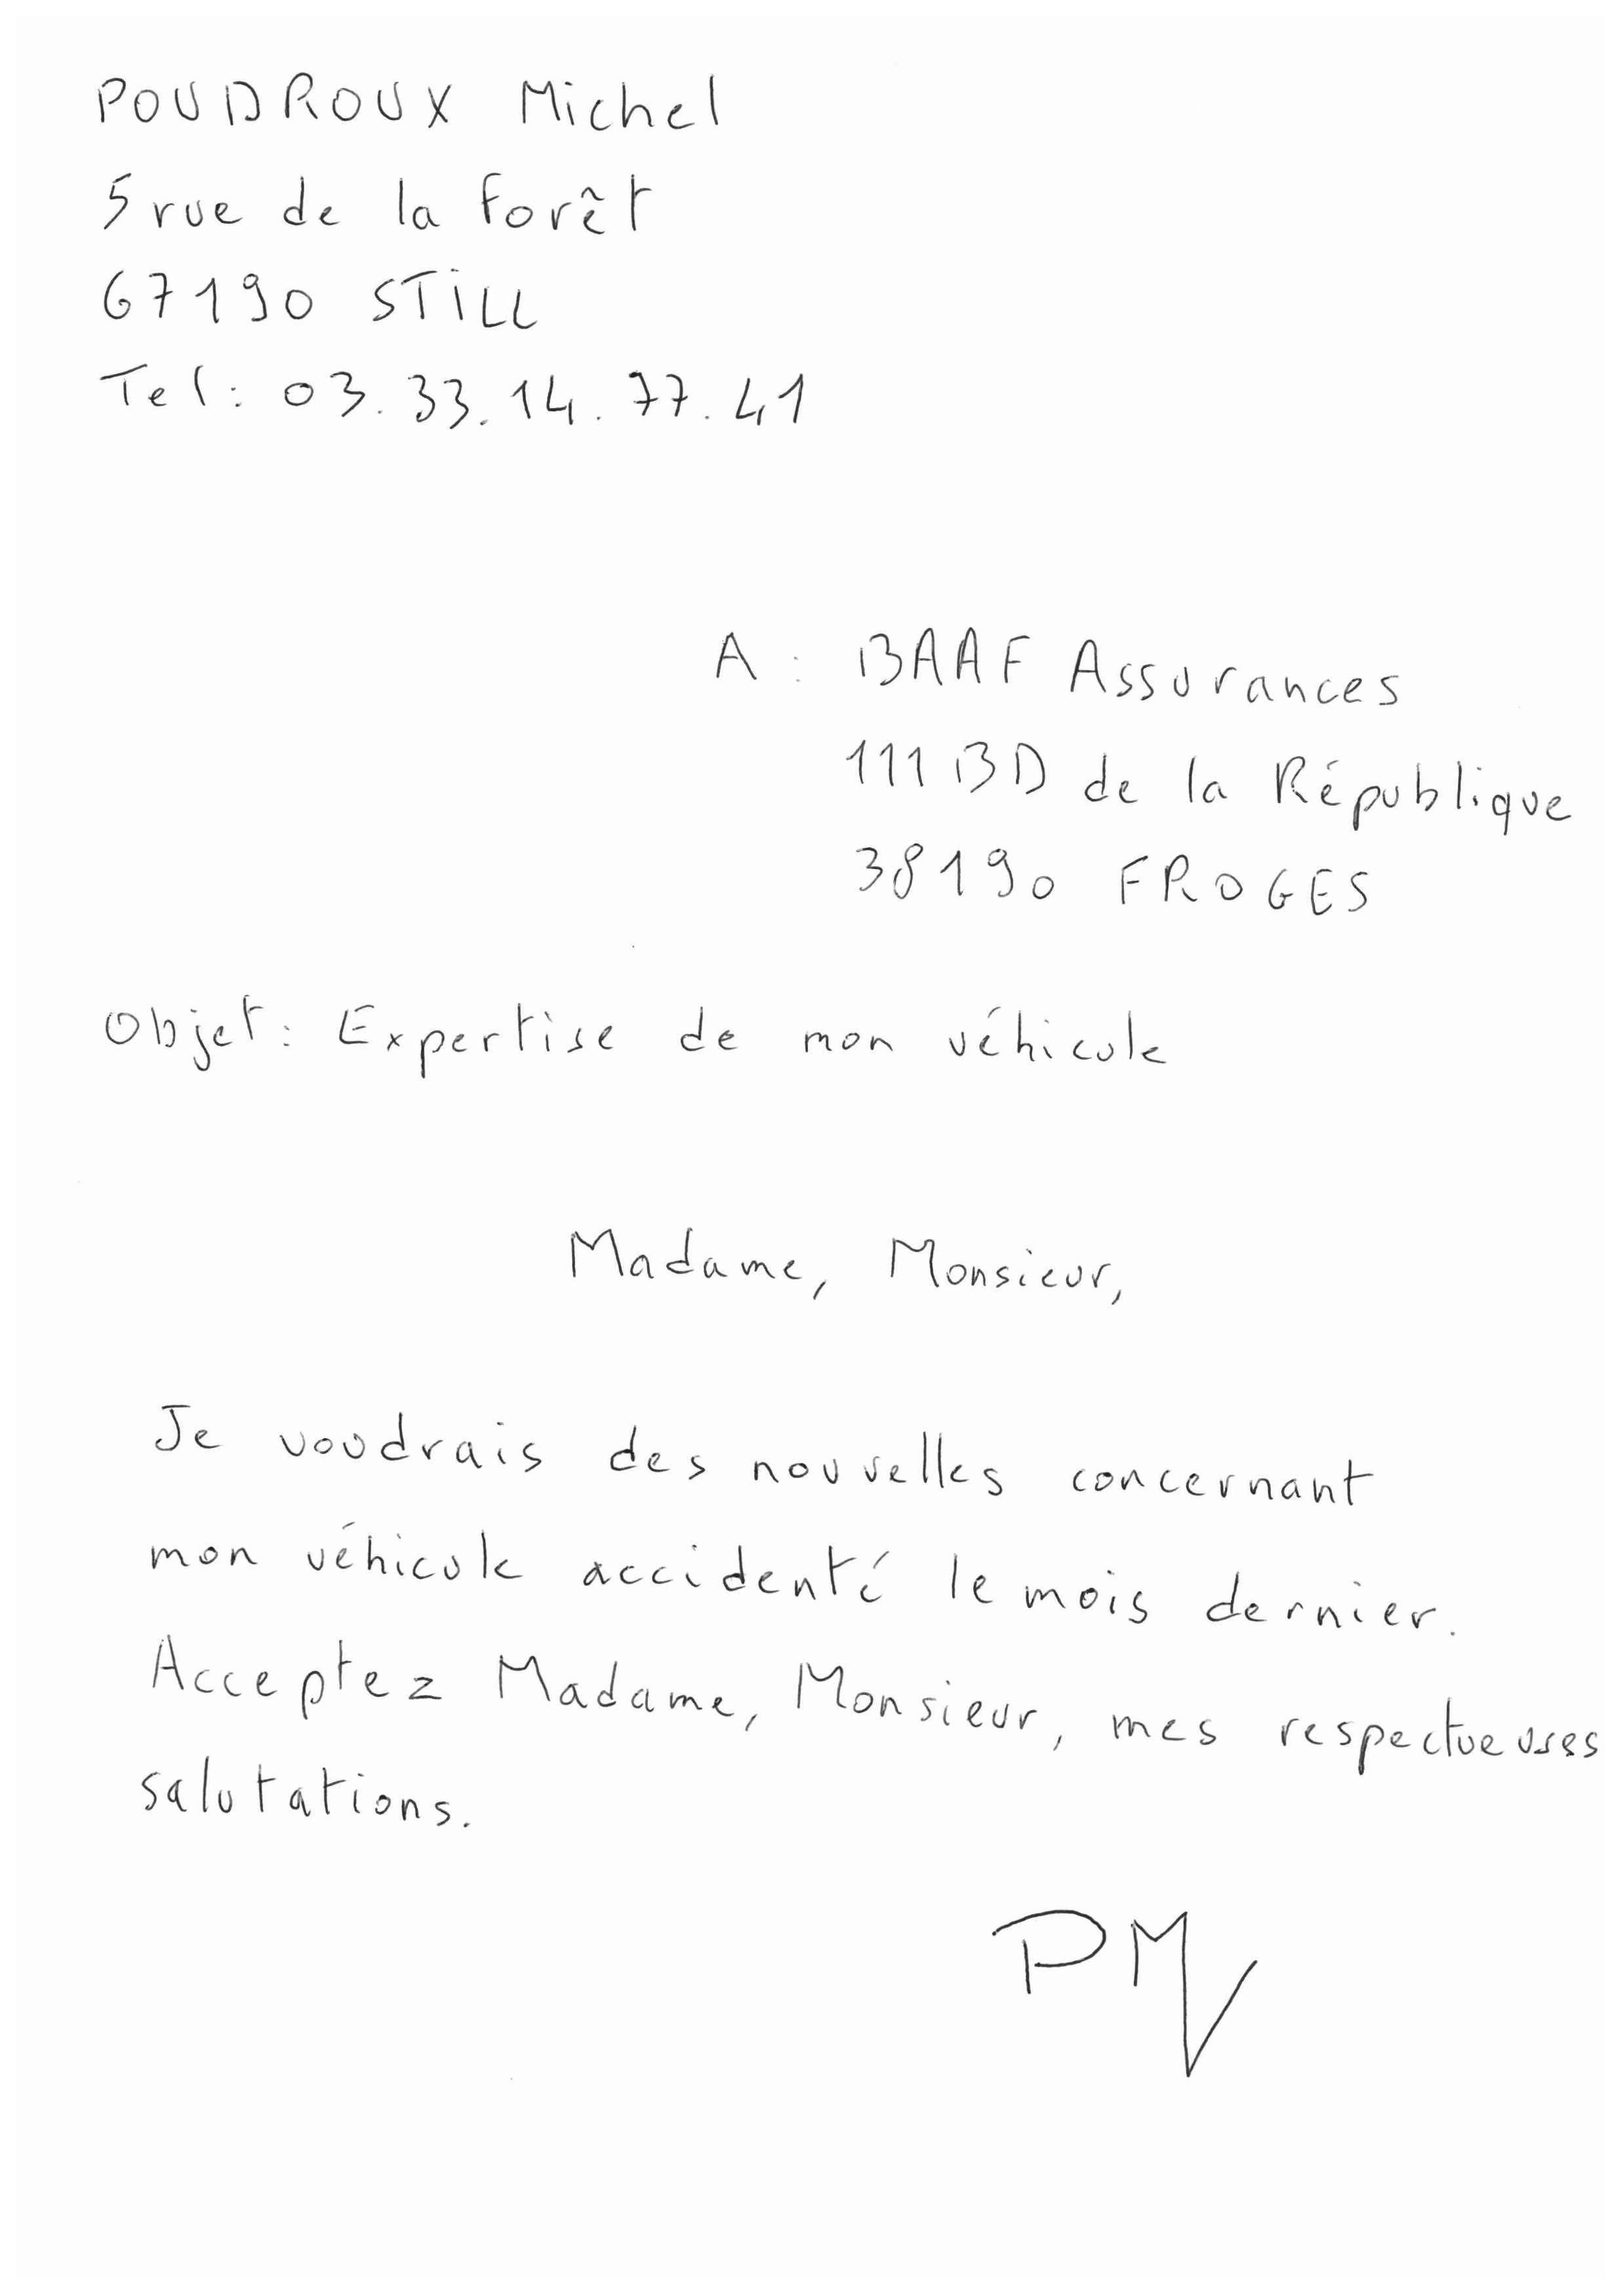 POUDROUX Michel
5 rue de la forêt
67190 STILL
Tel: 03.33.14.77.41
A : BAAF Assurances
111 BD de la République
38190 FROGES
Objet: Expertise de mon véhicule
Madame, Monsieur,
Je voudrais des nouvelles concernant
mon véhicule accidenté le mois dernier.
Acceptez Madame, Monsieur, mes respectueuses
salutations.
PM